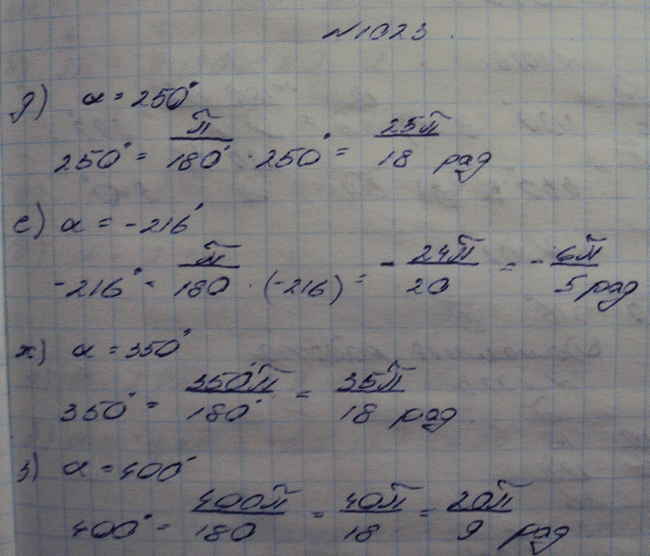 №1023.
д) α = 250°
250° = π/180° · 250° = 25π/18 рад
е) α = -216°
-216° = π/180 · (-216) = -24π/20 = -6π/5 рад
ж) α = 350°
350° = 350°π/180° = 35π/18 рад.
з) α = 400°
400° = 400π/180 = 40π/18 = 20π/9 рад.